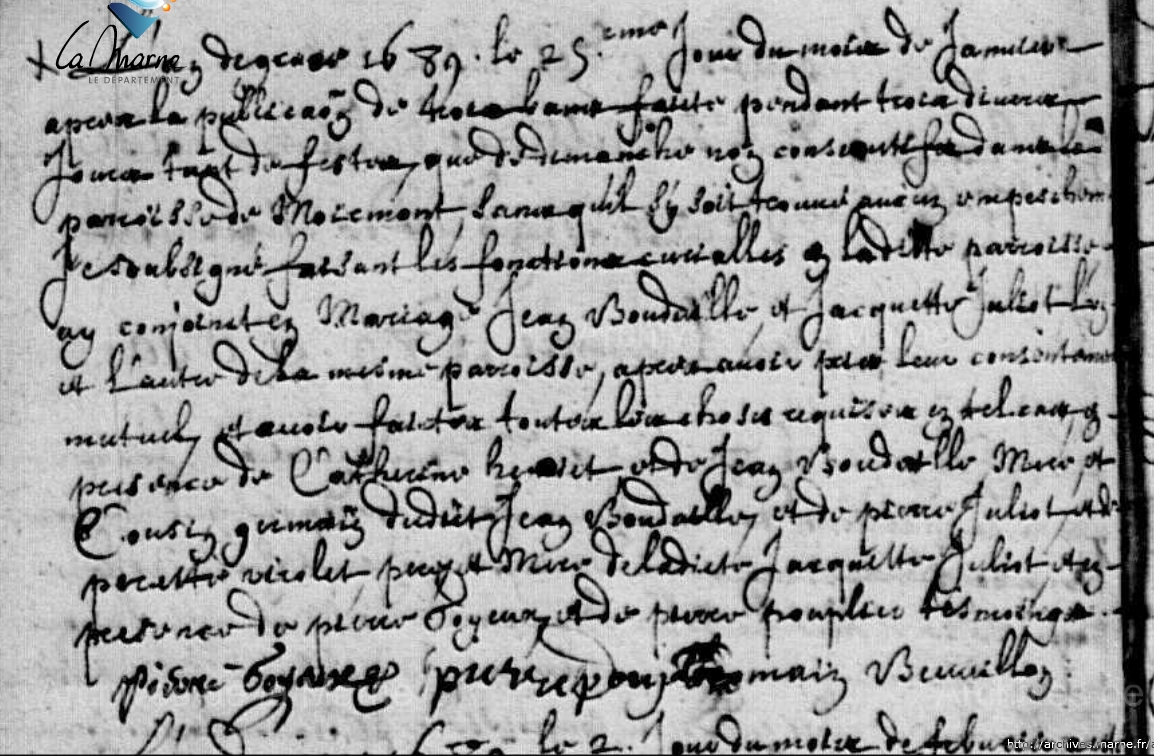 La Marne
LE DÉPARTEMENT
de grace 1689. le 25.eme Jour du mois de Janvier
apres la publicaõn de trois bans faicte pendant trois divers
Jours tant de festes, que de dimanche non consecutifs dans la
parroisse de Moiremont, sans qu'il s'y soit trouvé aucun empeschem
Je soubsigné faisant les fonctions curialles en laditte parroisse
ay conjoinct en Mariage Jean Boudaille, et Jacquette Juliot l'un
et l'autre de la mesme parroisse, apres avoir pris leur consentemen
mutuel, et avoir faictes toutes les choses requises en tel cas, en
presence de Catherine et de Jean Boudaille Mere, et
Cousin germain dudict Jean Boudaille, et de pierre Juliot, et de
perette violet pere et Mere de ladicte Jacquette Juliot et en
presence de pierre Goyeux, et de pierre pouplier tesmoings.
pierre Goyeux pierre
le 2. Jour du mois de febvrier
http://archives.marne.fr/a